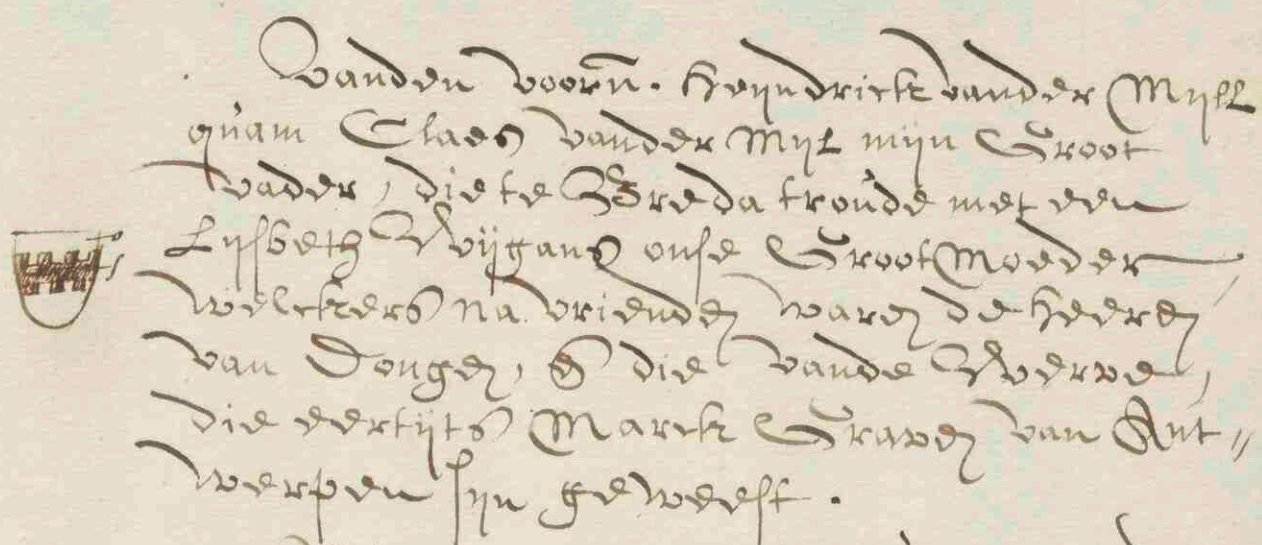 Vanden voorn. Heijndrick vander Mijll
quam Claes vander Mijl mijn Groot
vader, die te Breda troude met een
Lijsbeth Wijgans onse GrootMoeder,
welckers na vrienden waren de heeren
van Dongen, en die vande Werve,
die eertijts Marck Graven van Ant„
werpen sijn geweest.